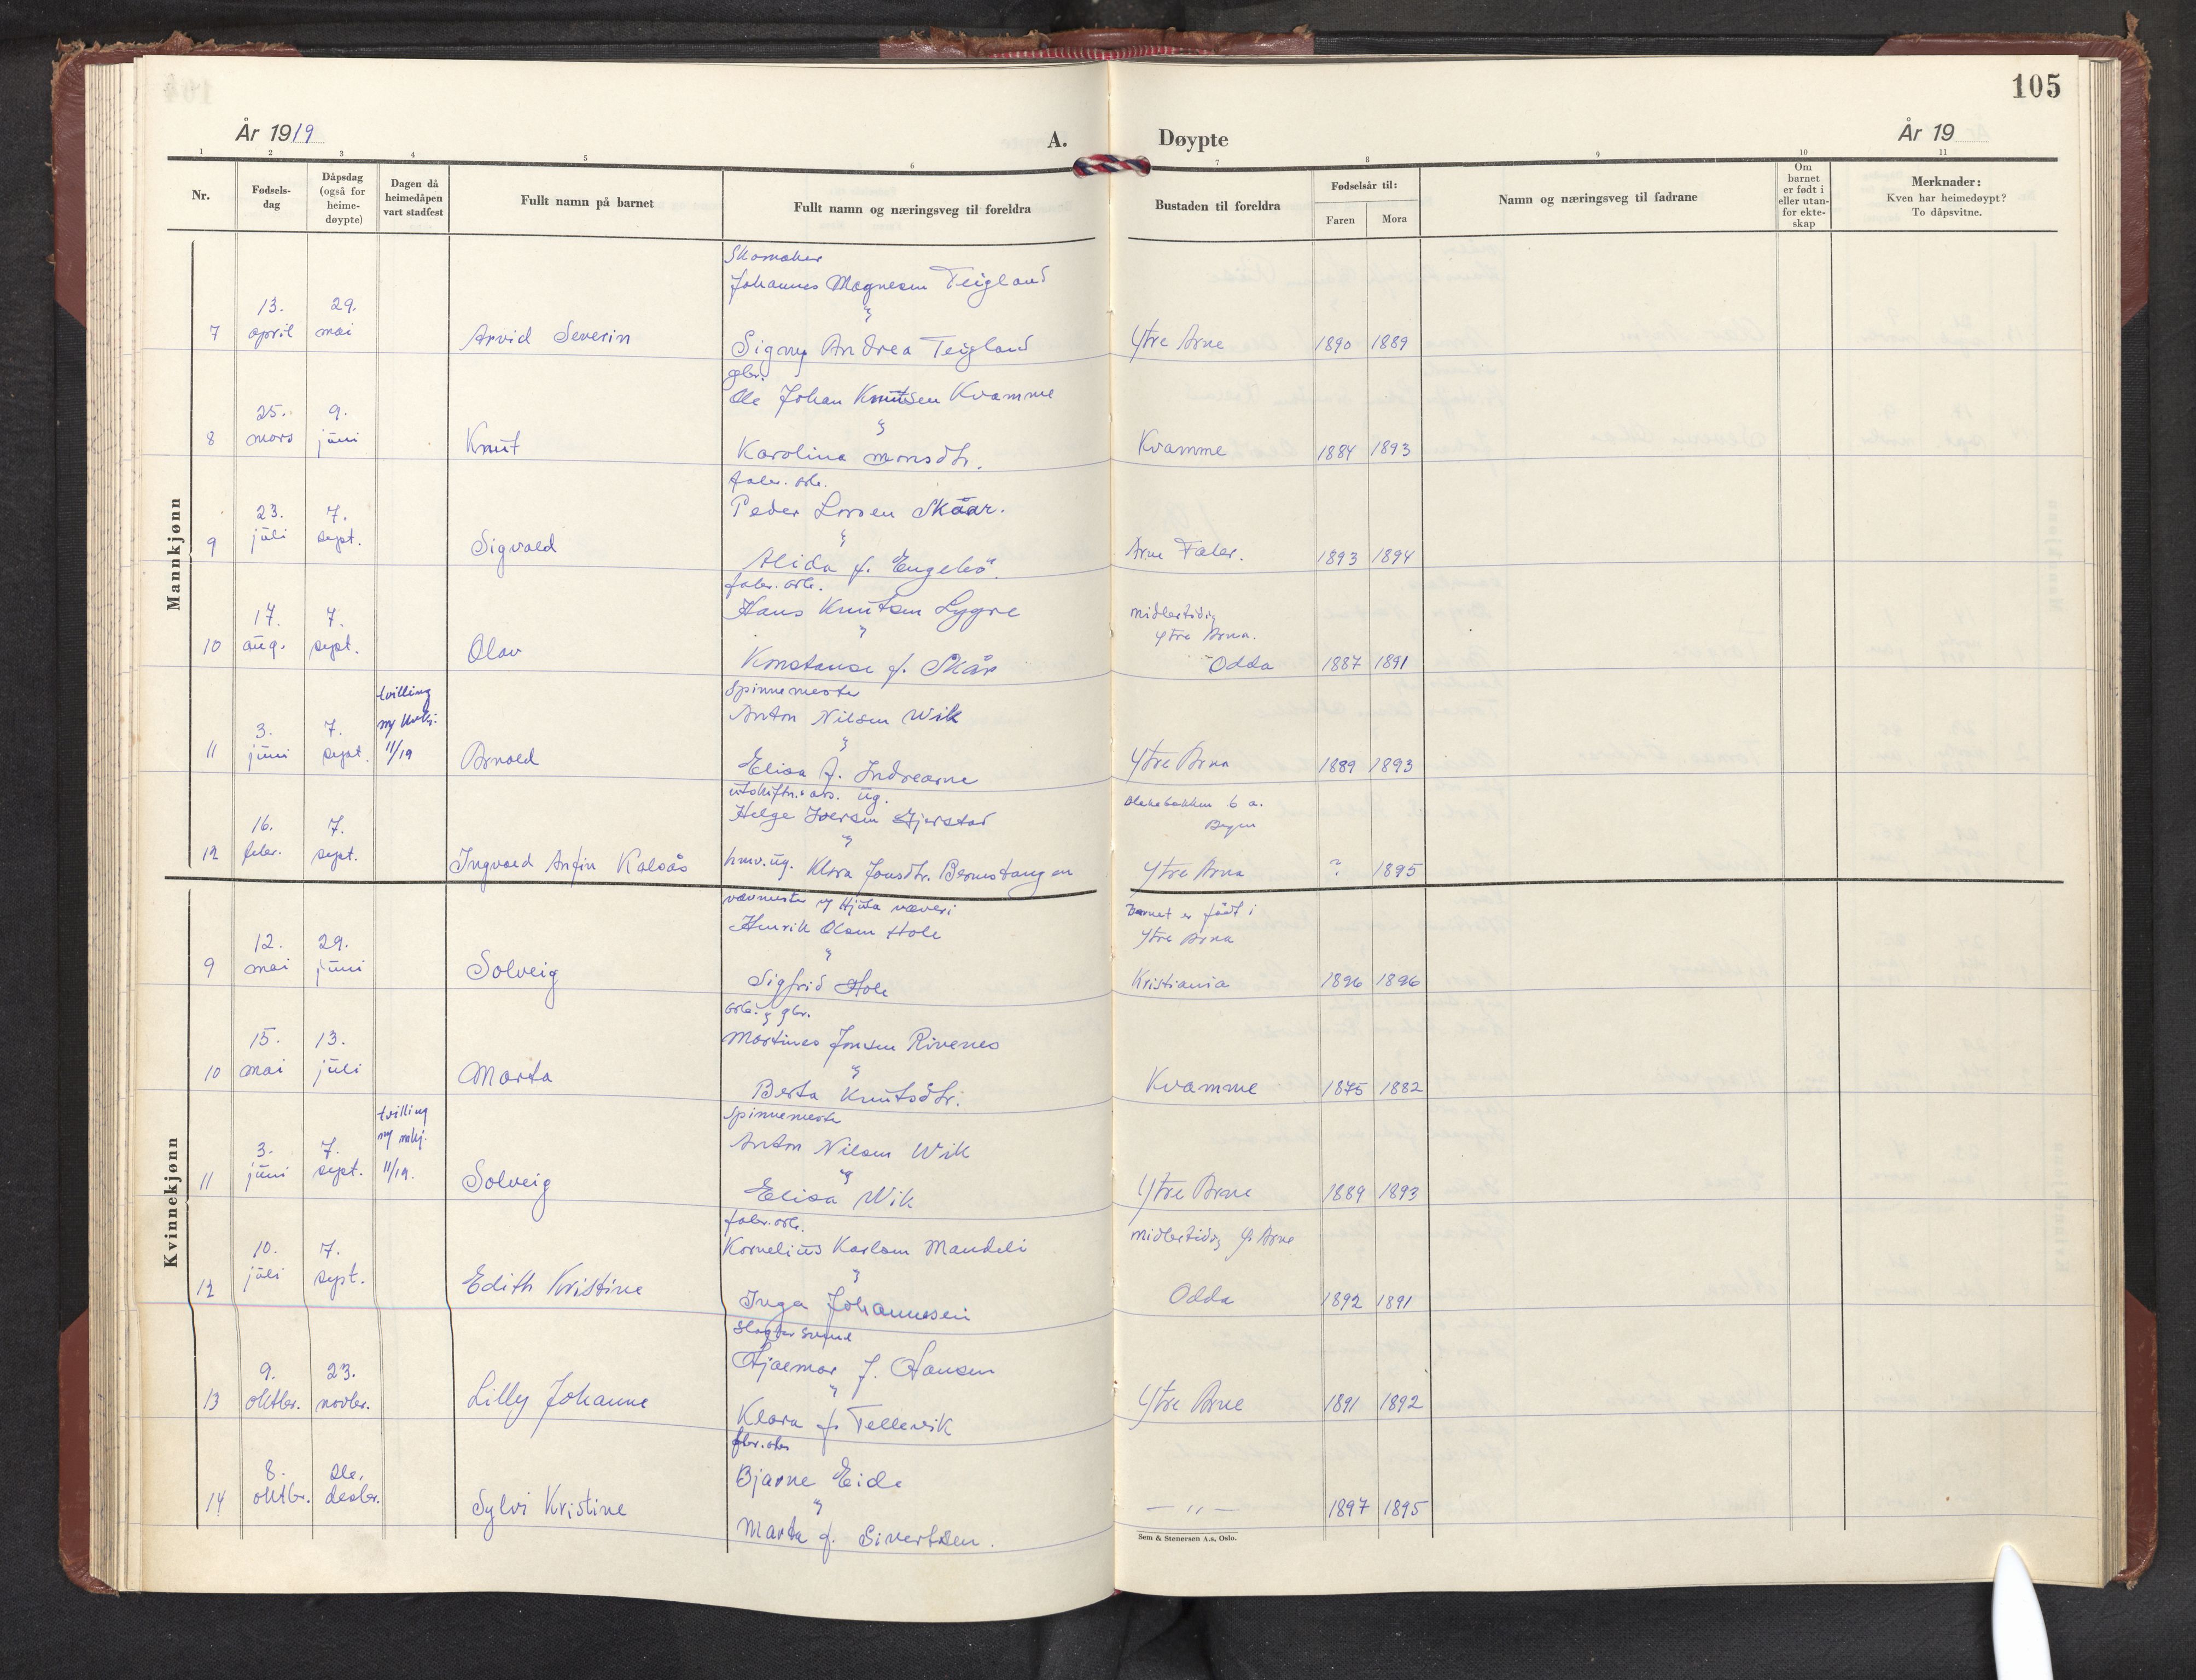 105
År 1919
A.
Døypte
År 19
1 2 3 4 5 6 7 8 9 10 11
Nr.
Fødsels-
dag
Dåpsdag
(også for
heime-
døypte)
Dagen då
heimedåpen
vart stadfest
Fullt namn på barnet
Fullt namn og næringsveg til foreldra
Bustaden til foreldra
Fødselsår til:
Faren
Mora
Namn og næringsveg til fadrane
Om
barnet
er født i
eller utan-
for ekte-
skap
Merknader:
Kven har heimedøypt?
To dåpsvitne.
Mannkjønn
Skomaker
Johannes Magnesen Teigland
13. 29.
7 april mai Arvid Severin
Signy Andrea Teigland Ytre Arne 1890 1889
gbr.
Ole Johan Knutsen Kvamme
25. 9.
8 mars juni Knut
Karolina monsdtr. Kvamme 1884 1893
fabr. arb.
Peder Larsen Skåar.
23. 7.
9 juli sept. Sigvald
Alida f. Engebø. Arne Fabr. 1893 1894
fabr. arb.
Hans Knutsen Lygre midlertidig
17. 7. Ytre Arna.
10 aug. sept. Olav
Konstanse f. Skår Odda 1887 1891
tvilling
m/ kvkj.
11/19
Spinnemester
Anton Nilsen Wik
3. 7.
11 juni sept. Arnold
Elisa f. Indrearne Ytre Arna 1889 1893
utskiftn.ass. ug.
Helge Iversen Gjerstad
16. 7. Bergen
12 febr. sept. Ingvald Anfin Kalsås
hmv. ug. Klara Jonsdtr. Bernstangen Ytre Arna ? 1895
Kvinnekjønn
vævmester v/ Hjula væveri Barnet er født i
Henrik Olsen Hole Ytre Arna
12. 29.
9 mai juni Solveig
Sigfrid Hole Kristiania 1896 1896
arb. & gbr.
Martines Jonsen Rivenes
15. 13.
10 mai juli Marta
Berta Knutsdtr. Kvamme 1875 1882
tvilling
m/ mkj.
11/19.
Spinnemester
Anton Nilsen Wik
3. 7.
11 juni sept. Solveig
Elisa Wik Ytre Arne 1889 1893
fabr. arb.
Kornelius Karlsen Mandeli midlertidig Y. Arne
10. 7.
12 juli sept. Edith Kristine
Inga Johannesen Odda 1892 1891
Slagtersvend
Hjalmar J. Hansen
9. 23.
13 oktbr. novbr. Lilly Johanne
Klara f. Tellevik Ytre Arne 1891 1892
fbr. arb.
Bjarne Eide
8. 26.
14 oktbr. desbr. Sylvi Kristine
Marta f. Sivertsen. — " — 1897 1895
Sem & Stenersen A.s, Oslo.